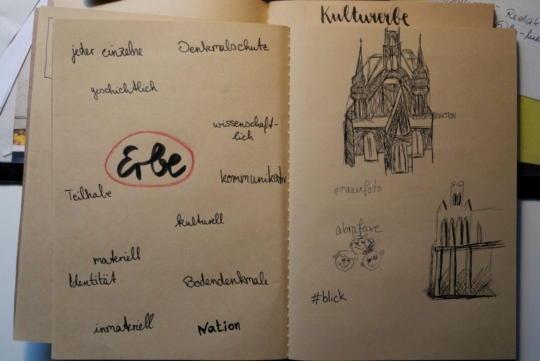 jeder einzelne
Denkmalschutz
geschichtlich
wissenschaft-
lich
Erbe
kommunikativ
Teilhabe
kulturell
materiell
Identität
Bodendenkmale
immateriell
Nation
Kulturerbe
#mauerfoto
abrafaxe
#blick